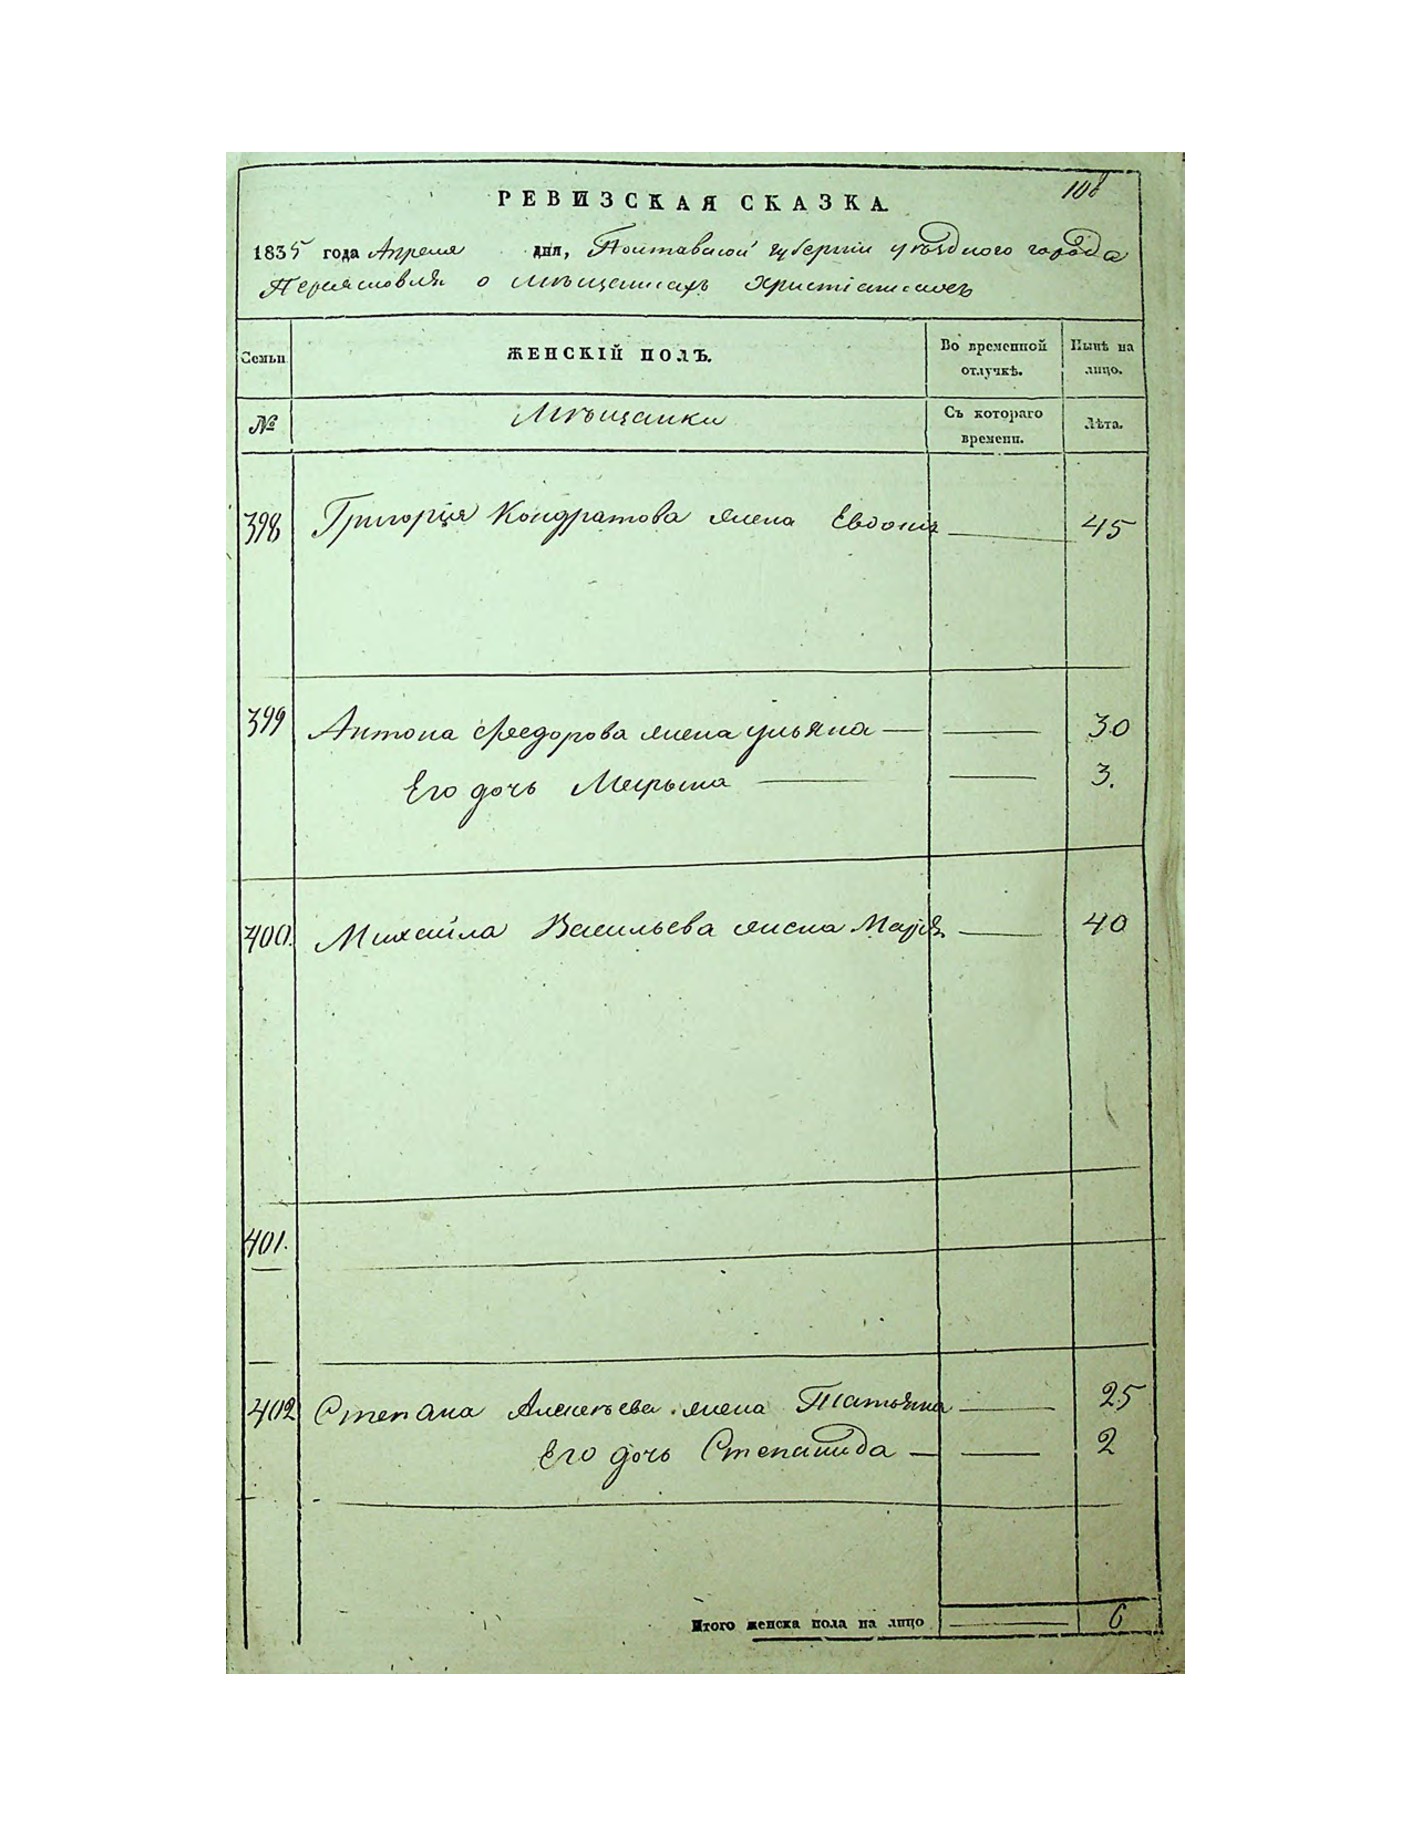 108
РЕВИЗСКАЯ СКАЗКА.
1835 года Апреля дня, Полтавской губернии уѣздного города
Переясловля о мѣщанахъ христіанахъ
Семьи ЖЕНСКІЙ ПОЛЪ. Во временной отлучкѣ. Нынѣ на лицо.
№ Мѣщанки Съ котораго времени. Лѣта.
398 Григорія Кондратова жена Евдокія 45
399 Антона Федорова жена Ульяна 30
Его дочь Марьяна 3.
400. Михайла Васильева жена Марія 40
401.
402 Степана Алексѣева жена Татьяна 25
Его дочь Степанида 2
Итого женска пола на лицо 6